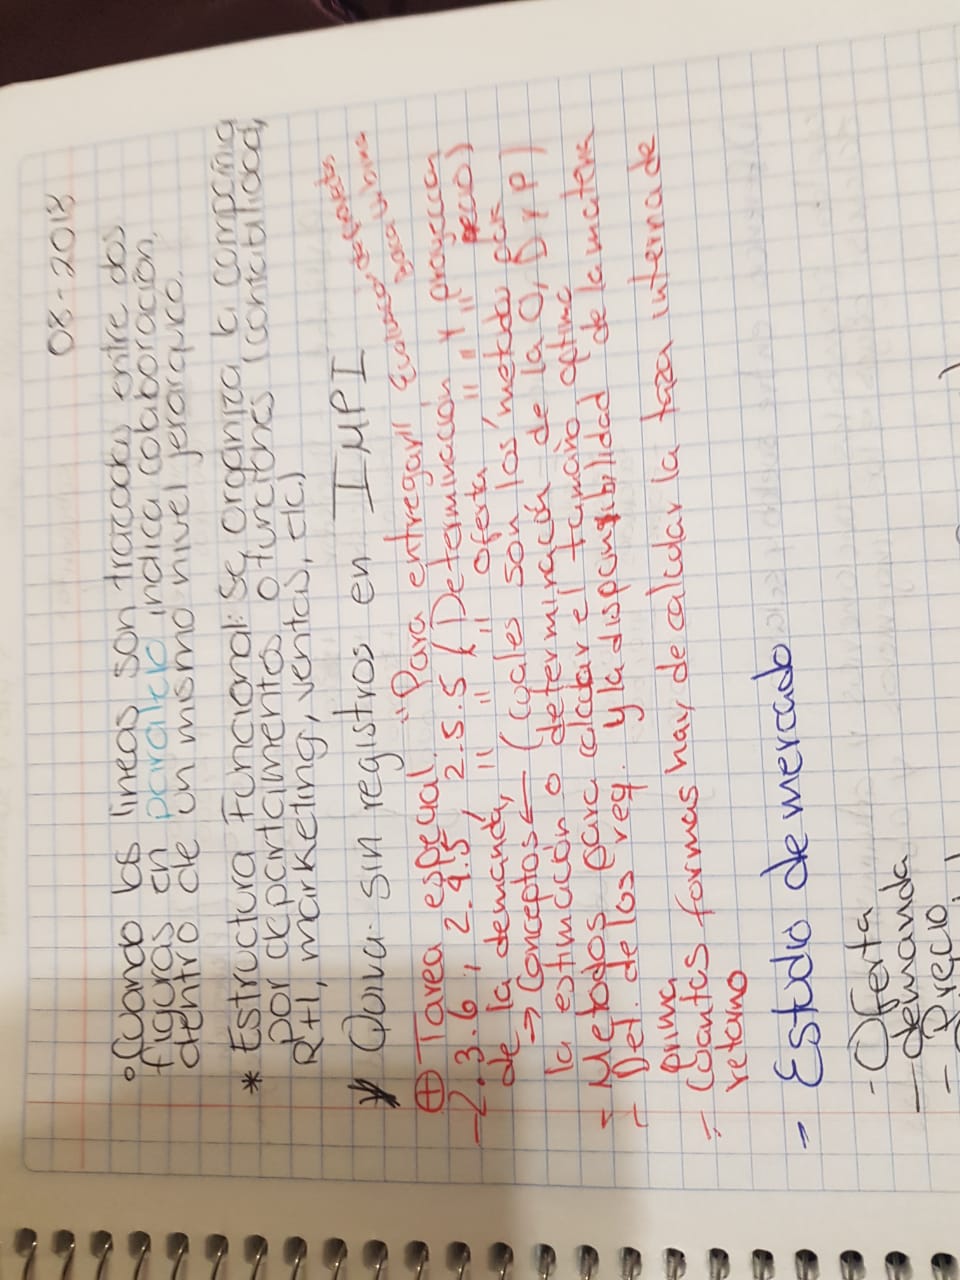 08-2018
Cuando las lineas son trazadas entre dos
figuras en paralelo indica colaboración,
dentro de un mismo nivel jerarquico.
* Estructura Funcional: Se organiza la compañia
por departamentos o funciones (contabilidad,
R+I, marketing, ventas, etc.)
sin registros en IMPI
Tarea especial. "Para entregar" Evaluacion de proyectos
Baca Urbina
-2.3.6, 2.4.5, 2.5.5 (Determinación y proyeccion
de la demanda, " " " oferta, " " " precio)
→ Conceptos ← (cuales son los metodos para
la estimación o determinación de la O, D y P)
- Metodos para calcular el tamaño optimo
- Det. de los req. y la disponibilidad de la materia
prima
- Cuantas formas hay de calcular la taza interna de
retorno
- Estudio de mercado
- Oferta
- demanda
- Precio